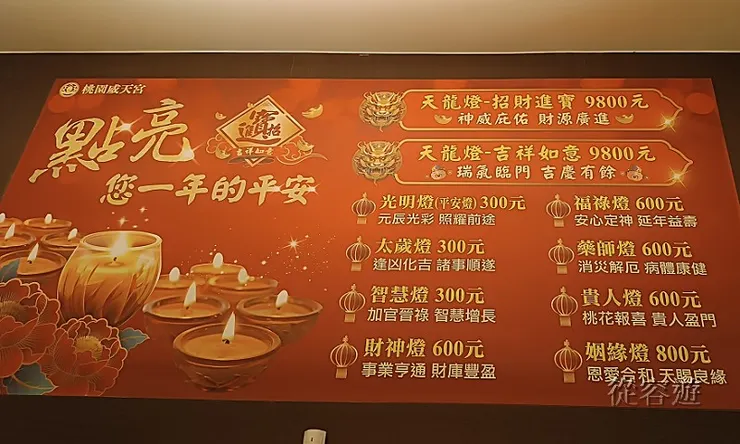 桃園威天宮
點亮
您一年的平安
招財進寶
吉祥如意
天龍燈-招財進寶 9800元
神威庇佑 財源廣進
天龍燈-吉祥如意 9800元
瑞氣臨門 吉慶有餘
光明燈(平安燈)300元
元辰光彩 照耀前途
太歲燈 300元
逢凶化吉 諸事順遂
智慧燈 300元
加官晉祿 智慧增長
財神燈 600元
事業亨通 財庫豐盈
福祿燈 600元
安心定神 延年益壽
藥師燈 600元
消災解厄 病體康健
貴人燈 600元
桃花報喜 貴人盈門
姻緣燈 800元
恩愛合和 天賜良緣
從容遊